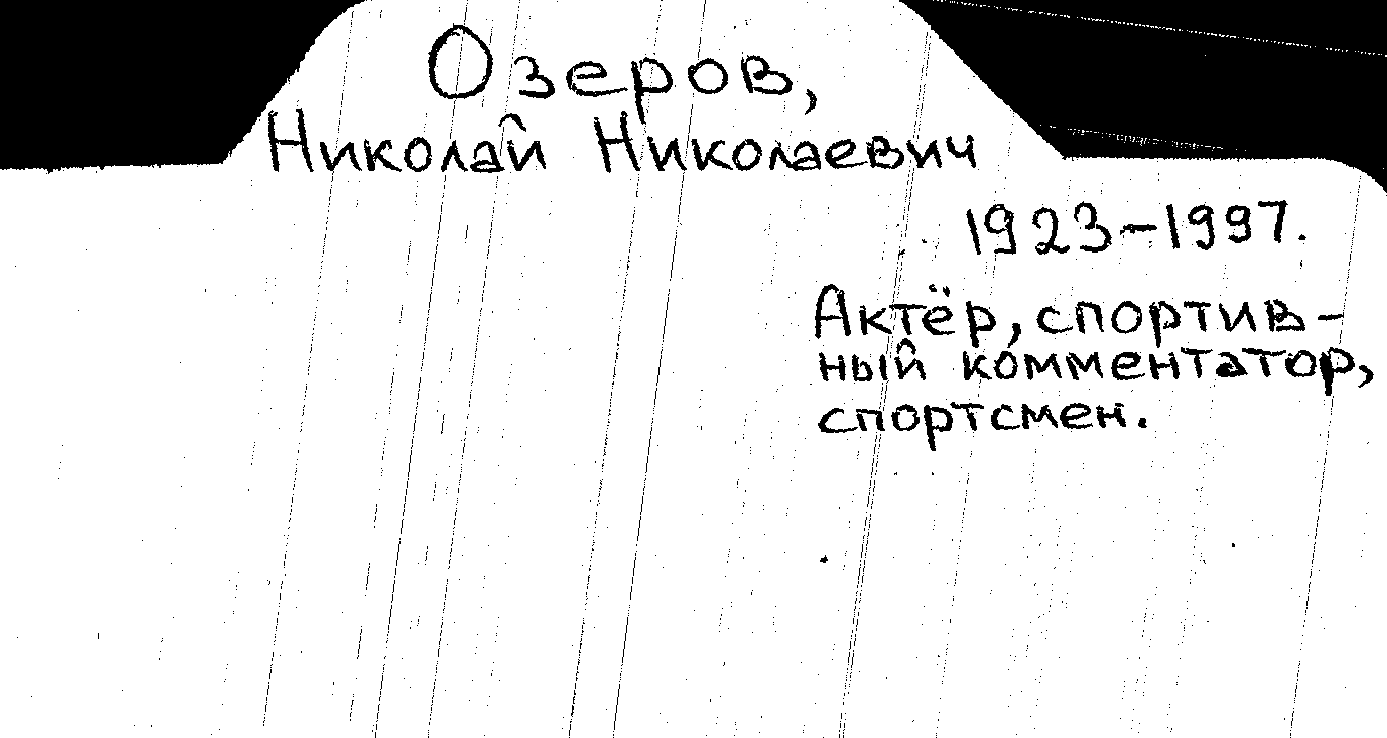 Озеров,
Николай Николаевич
1923-1997.
Актёр, спортив-
ный комментатор,
спортсмен.